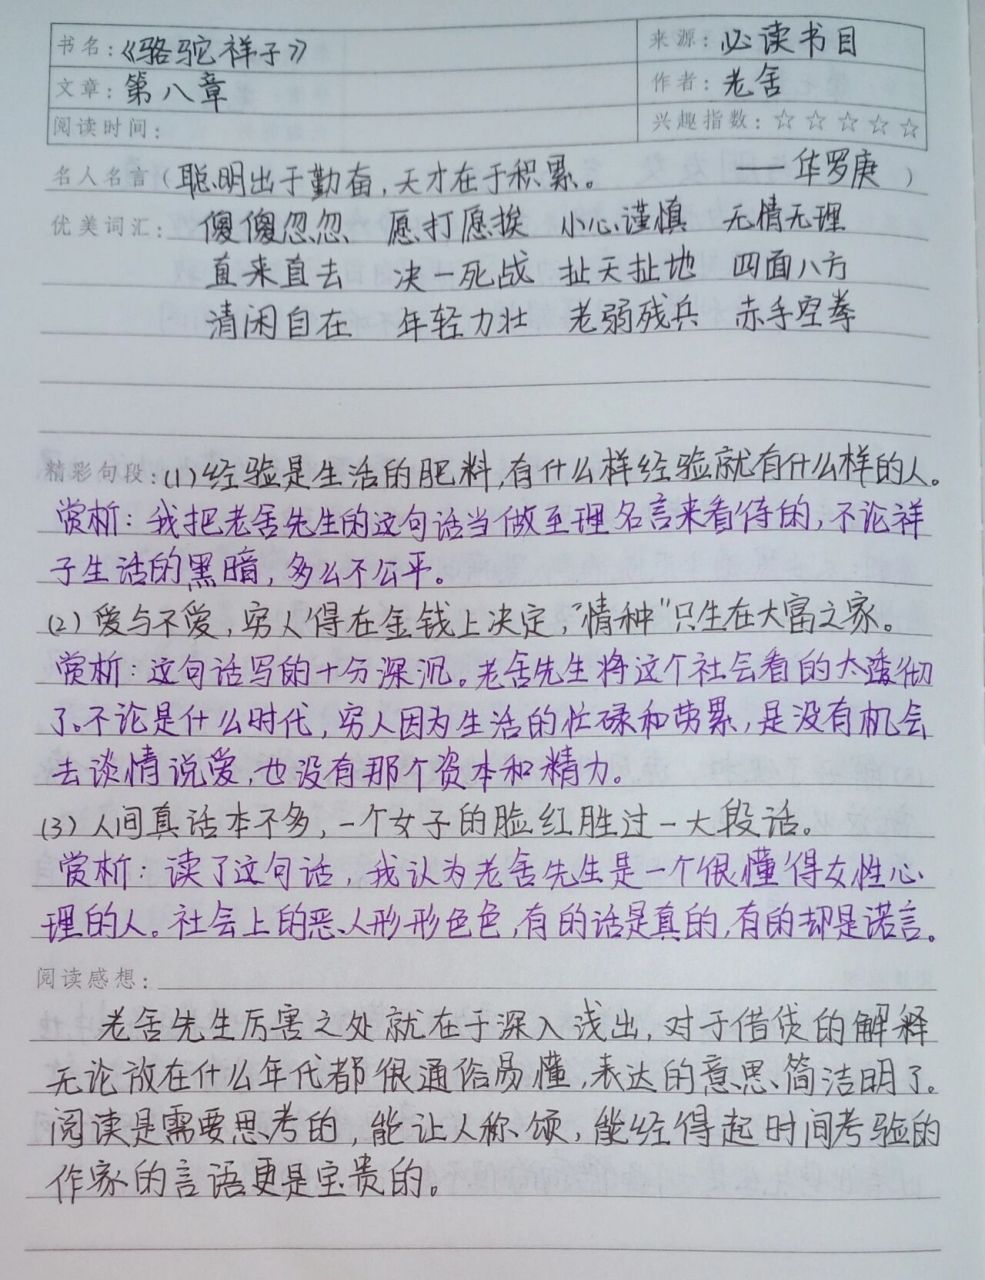 书名：《骆驼祥子》 来源：必读书目
文章：第八章 作者：老舍
阅读时间： 兴趣指数：☆☆☆☆☆
名人名言（聪明出于勤奋，天才在于积累。 ——华罗庚 ）
优美词汇： 傻傻忽忽 愿打愿挨 小心谨慎 无情无理
直来直去 决一死战 扯天扯地 四面八方
清闲自在 年轻力壮 老弱残兵 赤手空拳
精彩句段：(1)经验是生活的肥料，有什么样经验就有什么样的人。
赏析：我把老舍先生的这句话当做至理名言来看待的，不论祥
子生活的黑暗，多么不公平。
(2)爱与不爱，穷人得在金钱上决定，“情种”只生在大富之家。
赏析：这句话写的十分深沉。老舍先生将这个社会看的太透彻
了。不论是什么时代，穷人因为生活的忙碌和劳累，是没有机会
去谈情说爱，也没有那个资本和精力。
(3)人间真话本不多，一个女子的脸红胜过一大段话。
赏析：读了这句话，我认为老舍先生是一个很懂得女性心
理的人。社会上的恶人形形色色，有的话是真的，有的却是诺言。
阅读感想：
老舍先生厉害之处就在于深入浅出，对于借贷的解释
无论放在什么年代都很通俗易懂，表达的意思简洁明了。
阅读是需要思考的，能让人称颂，能经得起时间考验的
作家的言语更是宝贵的。